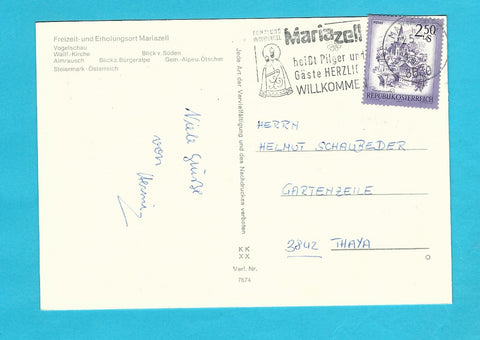 Freizeit- und Erholungsort Mariazell
Vogelschau
Wallf.-Kirche Blick v. Süden
Almrausch Blick z. Bürgeralpe Gem.-Alpe u. Ötscher
Steiermark - Österreich
Viele Grüße
von
Jede Art der Vervielfältigung und des Nachdruckes verboten
K K
X X
Verl. Nr.
7674
Mariazell
heißt Pilger und
Gäste HERZLI
WILLKOMME
2.50
S
REPUBLIK ÖSTERREICH
HERRN
HELMUT SCHALBEDER
GARTENZEILE
3842 THAYA